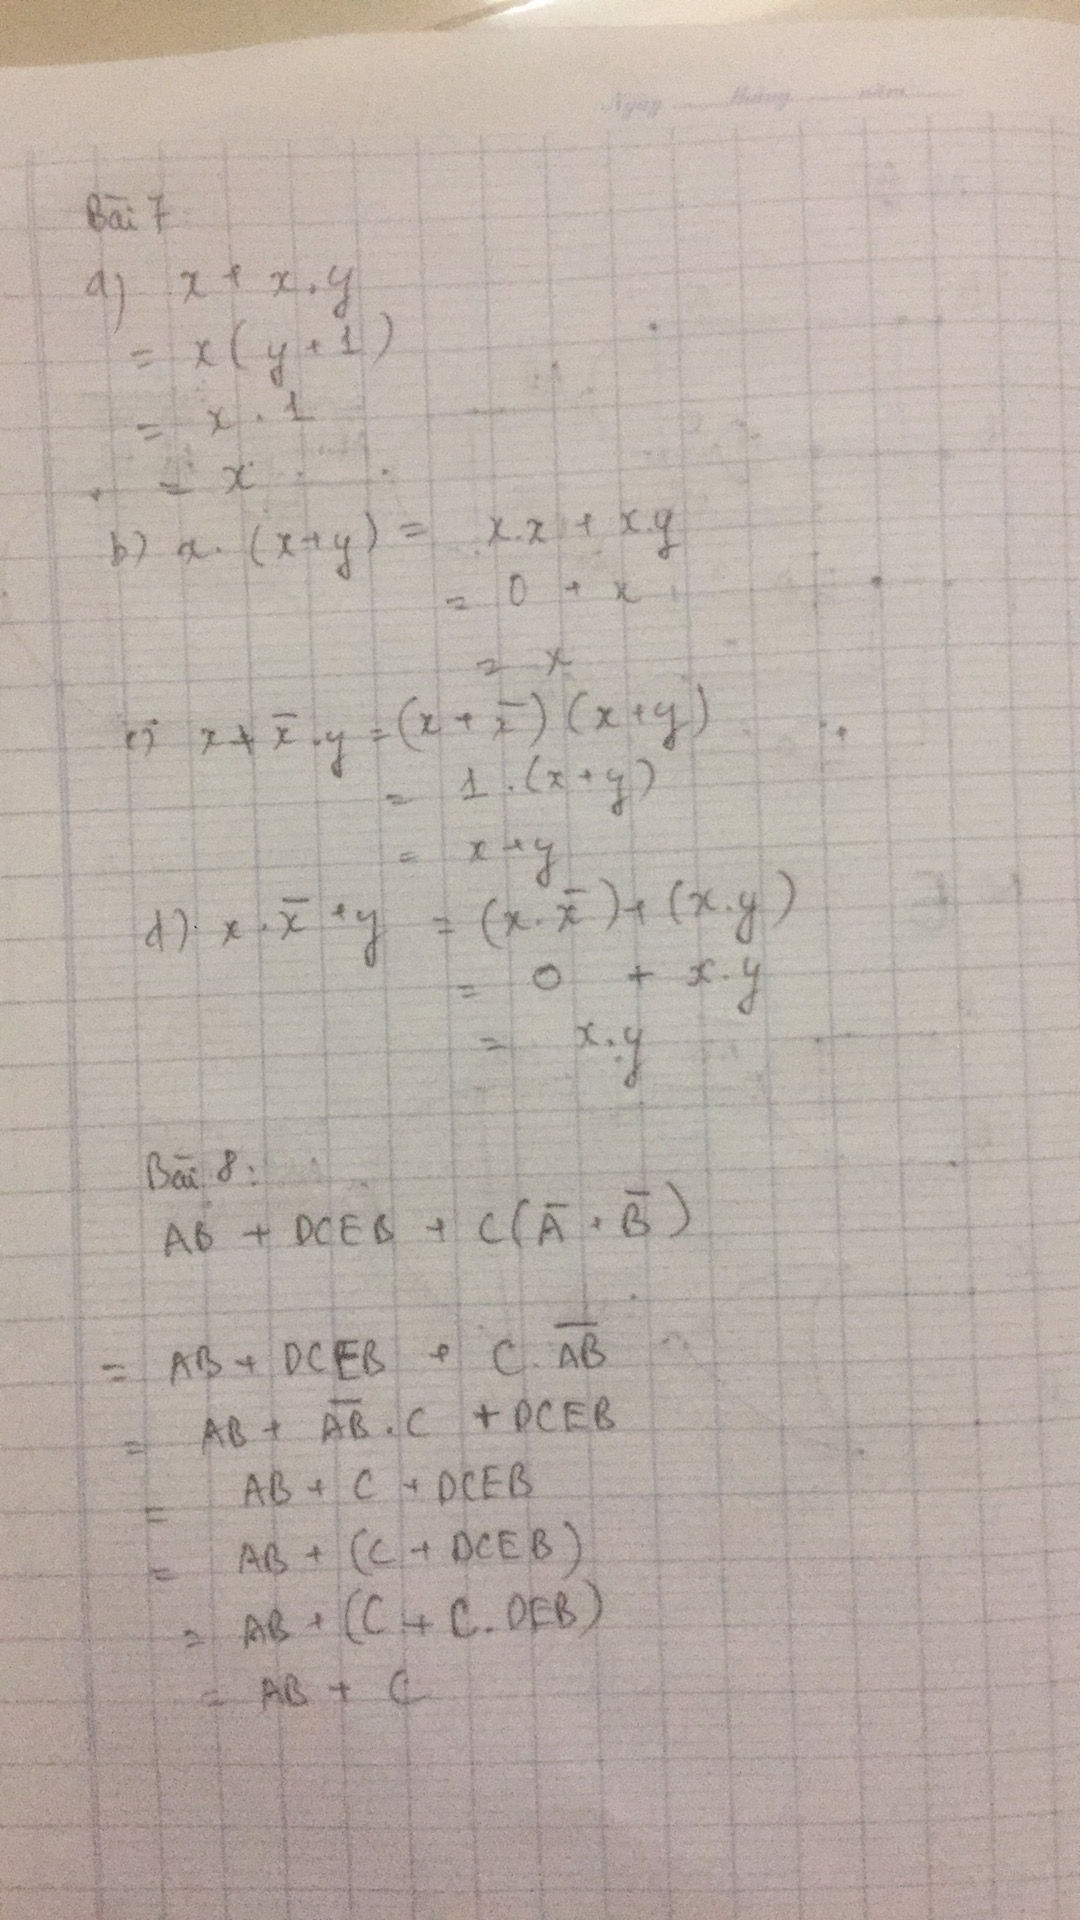 Ngày tháng năm
Bài 7
a) x + x.y
= x(y+1)
= x . 1
= x
b) x.(x+y) = x.x + x.y
= 0 + x
= x
c) x + x̅.y = (x + x̅)(x+y)
= 1.(x+y)
= x+y
d) x.x̅+y = (x.x̅)+(x.y)
= 0 + x.y
= x.y
Bài 8:
AB + DCEB + C(A̅ + B̅)
= AB + DCEB + C.A̅B̅
= AB + A̅B̅.C + DCEB
= AB + C + DCEB
= AB + (C + DCEB)
= AB + (C + C.DEB)
= AB + C